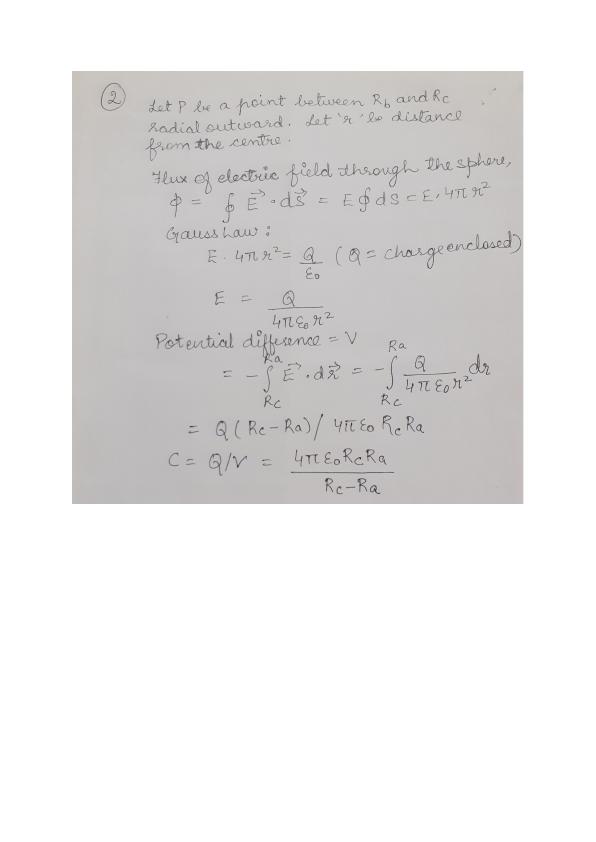 2
Let P be a point between Rb and Rc
radial outward. Let 'r' be distance
from the centre.
Flux of electric field through the sphere,
ϕ = ∮ E⃗ · dS⃗ = E ∮ dS = E. 4πr²
Gauss Law :
E. 4πr² = Q/ε₀ (Q = charge enclosed)
E = Q/4πε₀r²
Potential difference = V
= -∫_{Rc}^{Ra} E⃗ · dr⃗ = -∫_{Rc}^{Ra} Q/4πε₀r² dr
= Q(Rc-Ra)/4πε₀ RcRa
C = Q/V = 4πε₀RcRa/Rc-Ra